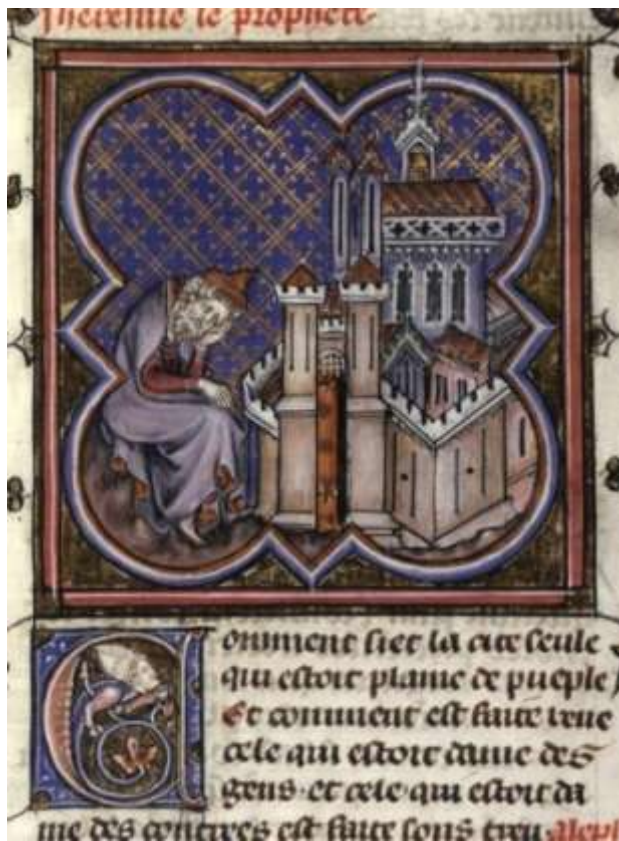 Jheremie le prophete.
Comment siet la cite seule
qui estoit plaine de pueple
Et comment est faite veue
cele qui estoit dame des
gens. et cele qui estoit da
me des contrees est faite sous treu. Aleph